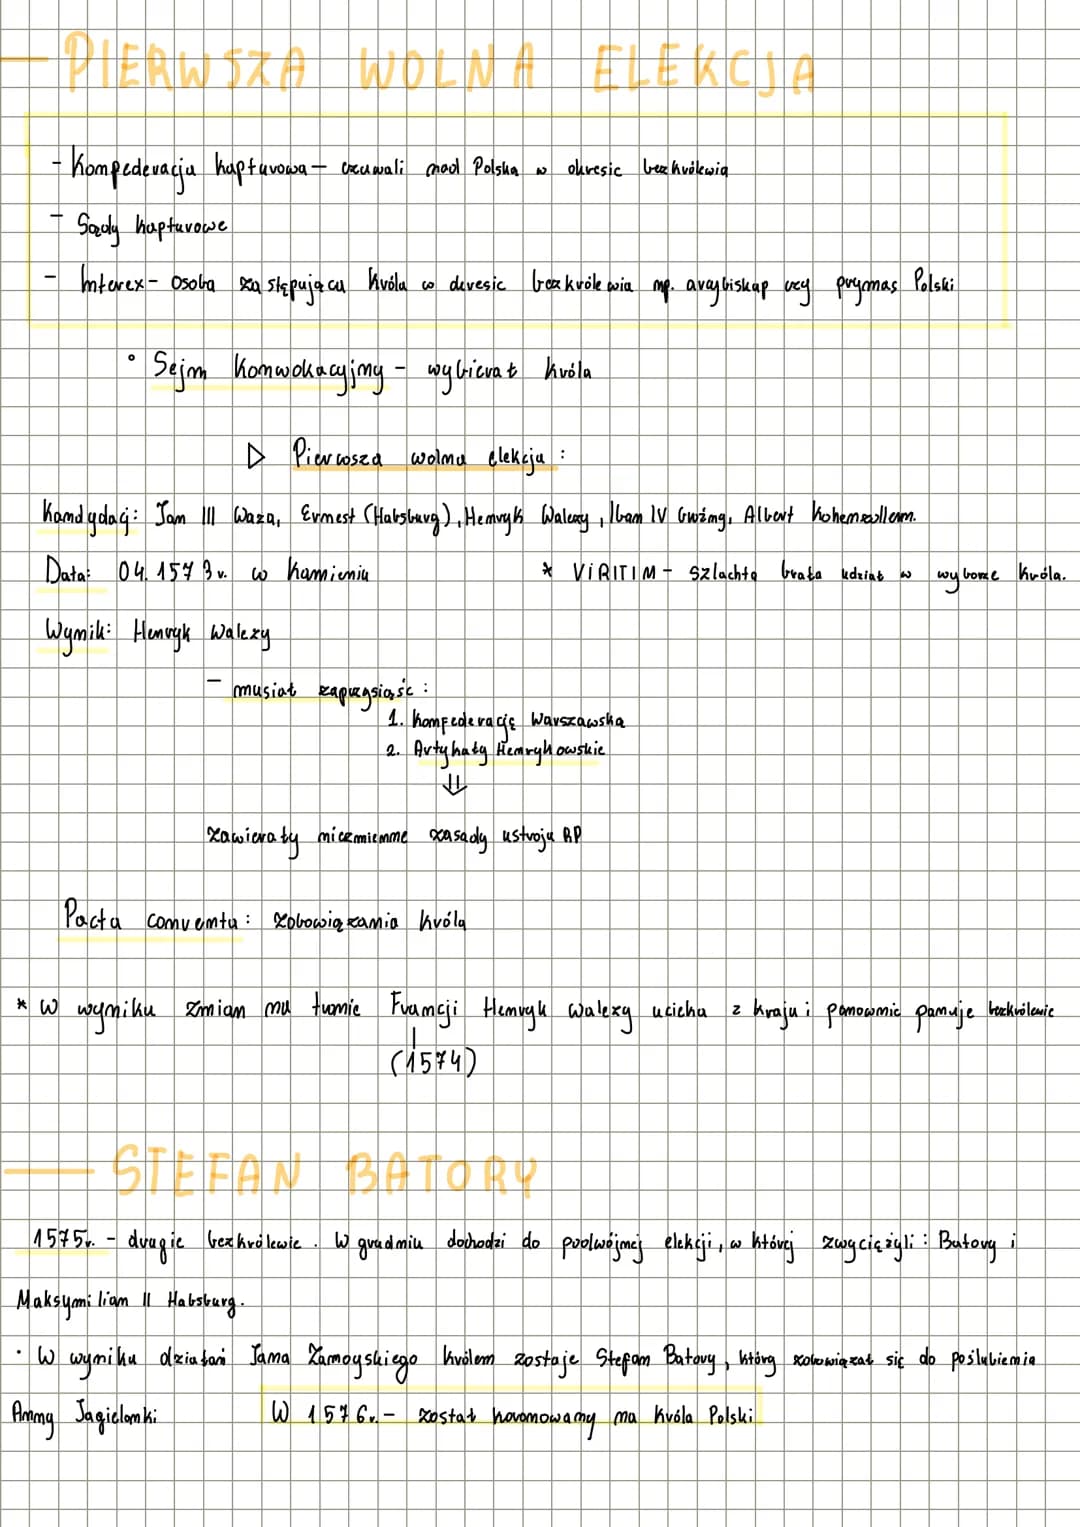 — PIERWSZA WOLNA ELEKCJA
- Konfederacja kapturowa — czuwali nad Polska w okresie bezkrólewia
- Sądy kapturowe
- Interex - osoba zastępująca króla w okresie bezkrólewia np. arcybiskup czy prymas Polski
• Sejm konwokacyjny - wybierał króla
▷ Pierwsza wolna elekcja :
Kandydaci: Jan III Waza, Ernest (Habsburg), Henryk Walezy, Iwan IV Groźny, Albert Hohenzollern.
Data: 04. 1573 r. w Kamieniu * VIRITIM - szlachta brała udział w wyborze króla.
Wynik: Henryk Walezy
- musiał zaprzysiąść :
1. Konfederację Warszawską
2. Artykuły Henrykowskie
⇓
zawierały niezmienne zasady ustroju RP
Pacta conventa : zobowiązania króla
* W wyniku zmian na tronie Francji Henryk Walezy ucieka z kraju i ponownie panuje bezkrólewie
(1574)
— STEFAN BATORY
1575r. - drugie bezkrólewie. W grudniu dochodzi do podwójnej elekcji, w której zwyciężyli : Batory i
Maksymilian II Habsburg.
• W wyniku działań Jana Zamoyskiego królem zostaje Stefan Batory, który zobowiązał się do poślubienia
Anny Jagielonki W 1576r. - został koronowany na króla Polski